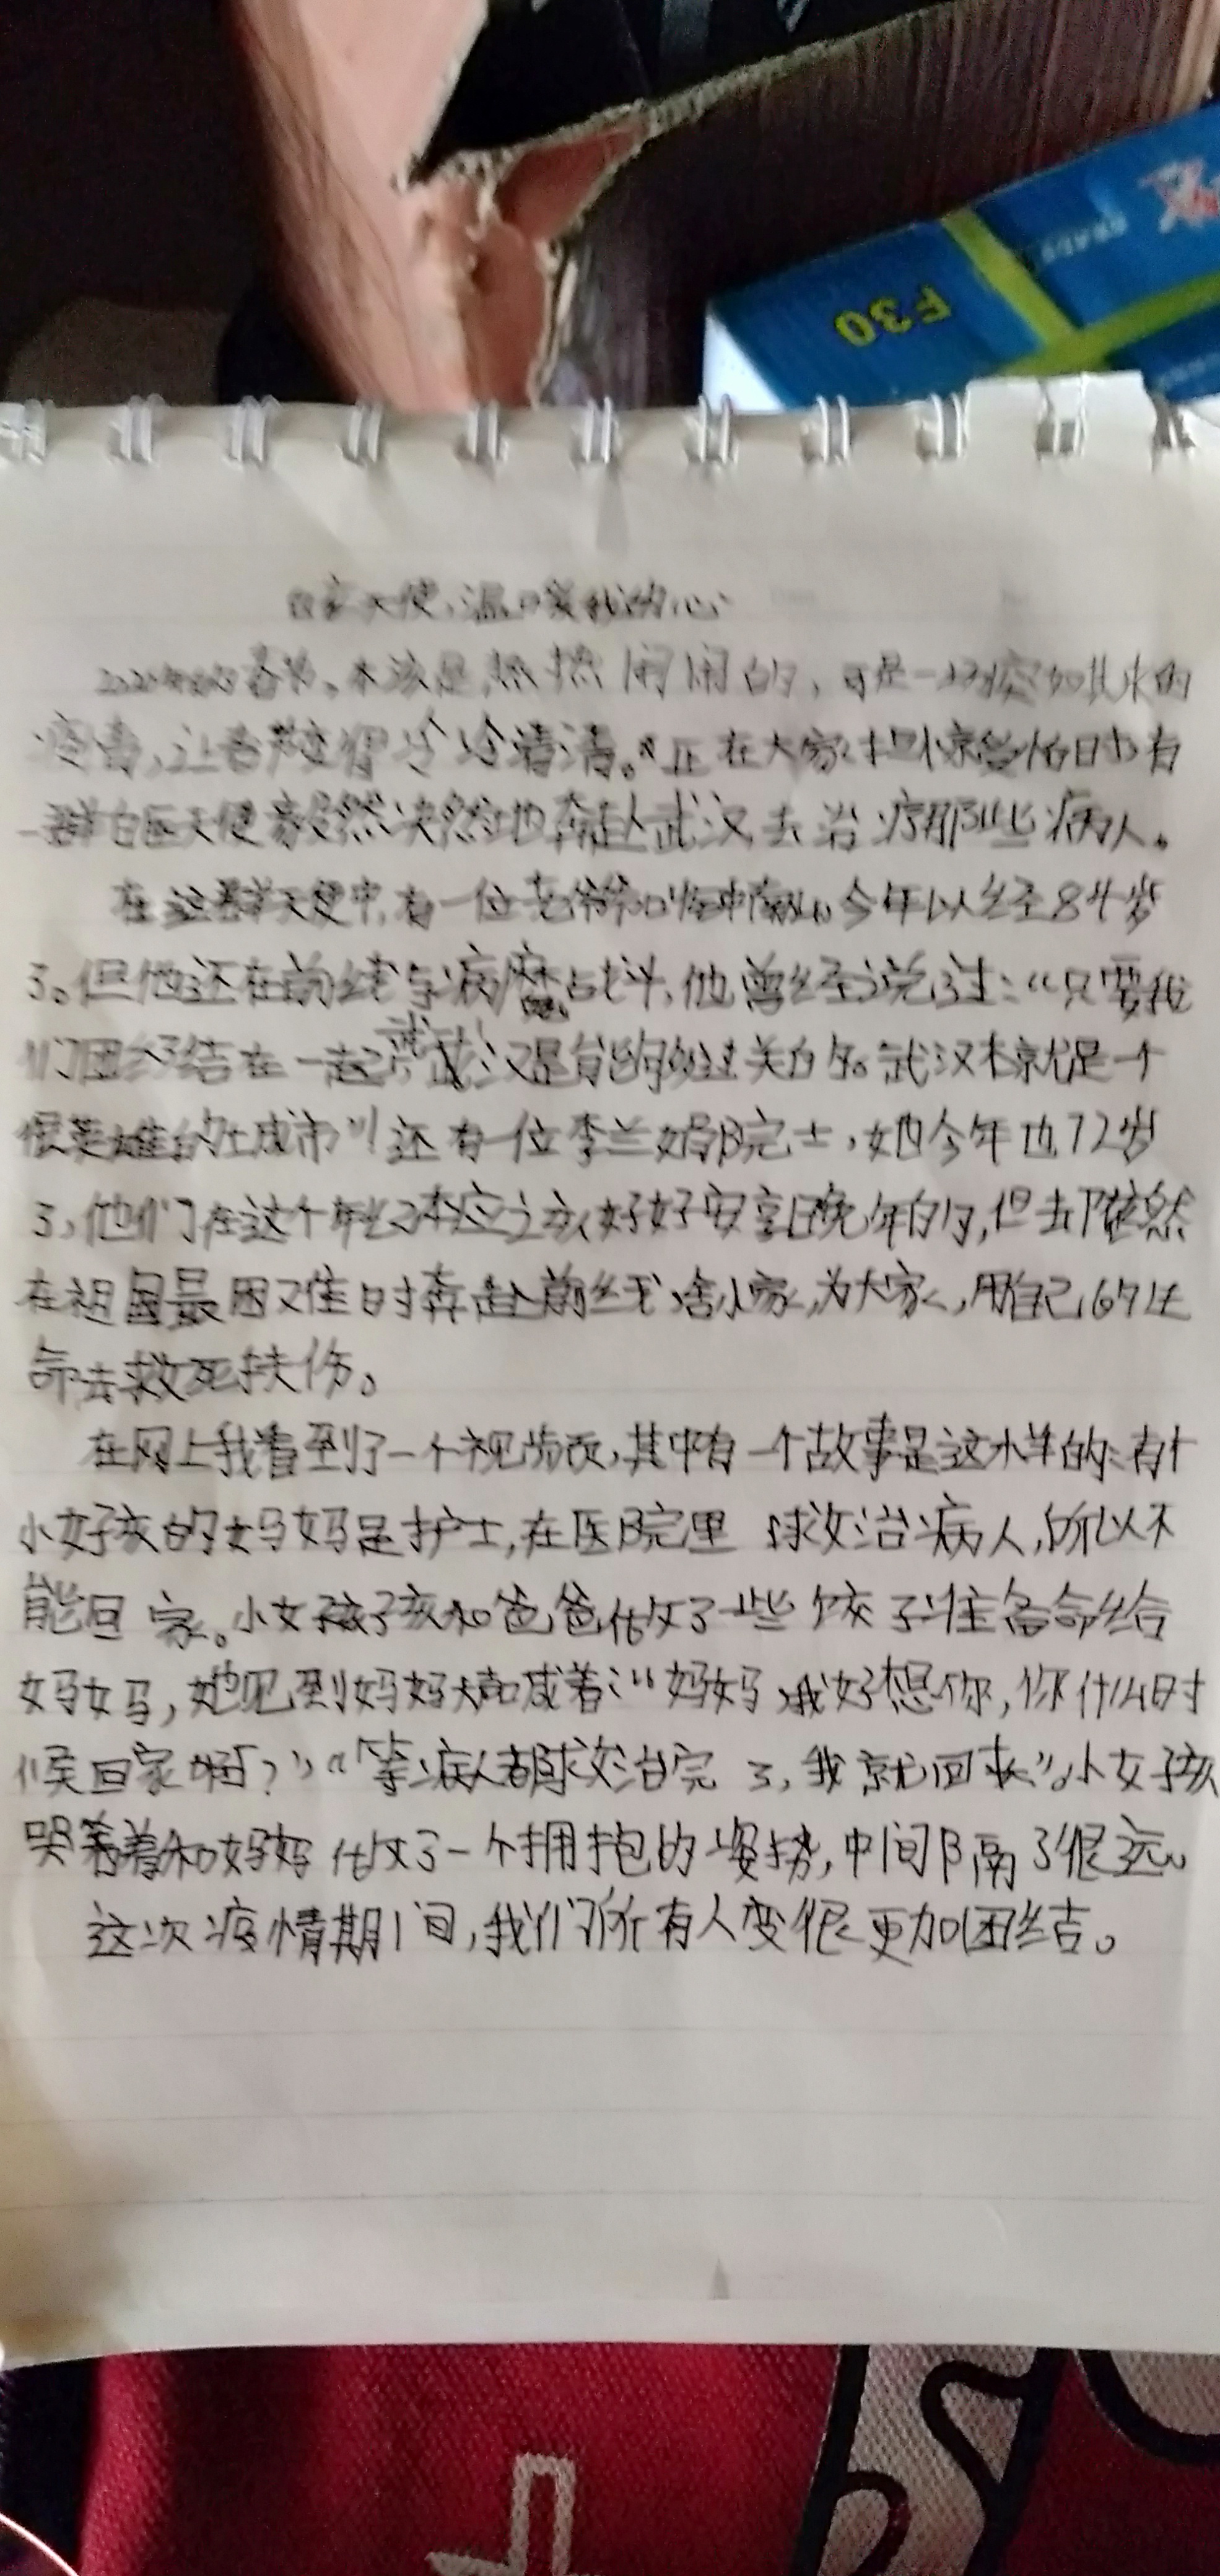 F30
GRADE
白衣天使,温暖我的心
2020年的春节,本该是热热闹闹的,可是一场突如其来的
病毒,让春节变得冷冷清清。正在大家担惊受怕时,有
一群白医天使毅然决然地奔赴武汉去治疗那些病人。
在这群天使中,有一位老爷爷叫钟南山,今年以经84岁
了。但他还在前线与病魔战斗,他曾经说过:“只要我
们团结在一起,武汉是能够过关的。武汉本就是一个
很英雄的城市”还有一位李兰娟院士,她今年也72岁
了,他们在这个年纪本应该好好安享晚年的,但去依然
在祖国最困难时奔赴前线,舍小家,为大家,用自己的生
命去救死扶伤。
在网上我看到了一个视频,其中有一个故事是这样的:有个
小女孩的妈妈是护士,在医院里救治病人,所以不
能回家。小女孩和爸爸做了一些饺子准备给
妈妈,她见到妈妈大声喊着:“妈妈,我好想你,你什么时
候回家啊?”“等病人都救治完了,我就回来”。小女孩
哭着和妈妈做了一个拥抱的姿势,中间隔了很远。
这次疫情期间,我们所有人变得更加团结。